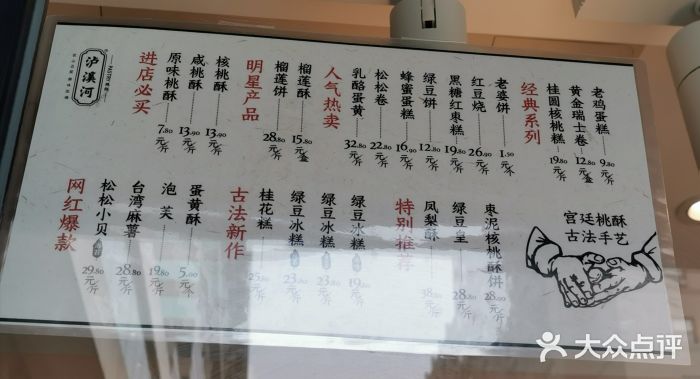 泸溪河
进店必买
原味桃酥 7.80元/斤
咸桃酥 13.90元/斤
核桃酥 13.90元/斤
明星产品
榴莲饼 28.80元/斤
榴莲酥 15.80元/盒
人气热卖
乳酪蛋黄 32.80元/斤
松松卷 22.80元/斤
蜂蜜蛋糕 16.90元/斤
绿豆饼 12.80元/斤
黑糖红枣糕 19.80元/斤
红豆烧 26.90元/斤
老婆饼 1.50元/个
经典系列
桂圆核桃糕 19.80元/斤
黄金瑞士卷 12.80元/盒
老鸡蛋糕 9.80元/斤
网红爆款
松松小贝 29.80元/斤
台湾麻薯 28.80元/斤
泡芙 19.80元/斤
蛋黄酥 5.00元/个
古法新作
桂花糕 25.80元/斤
绿豆冰糕 23.80元/斤
绿豆冰糕 23.80元/斤
绿豆冰糕 19.80元/斤
特别推荐
凤梨酥 38.80元/斤
绿豆皇 28.80元/斤
枣泥核桃酥饼 28.00元/斤
宫廷桃酥
古法手艺
大众点评